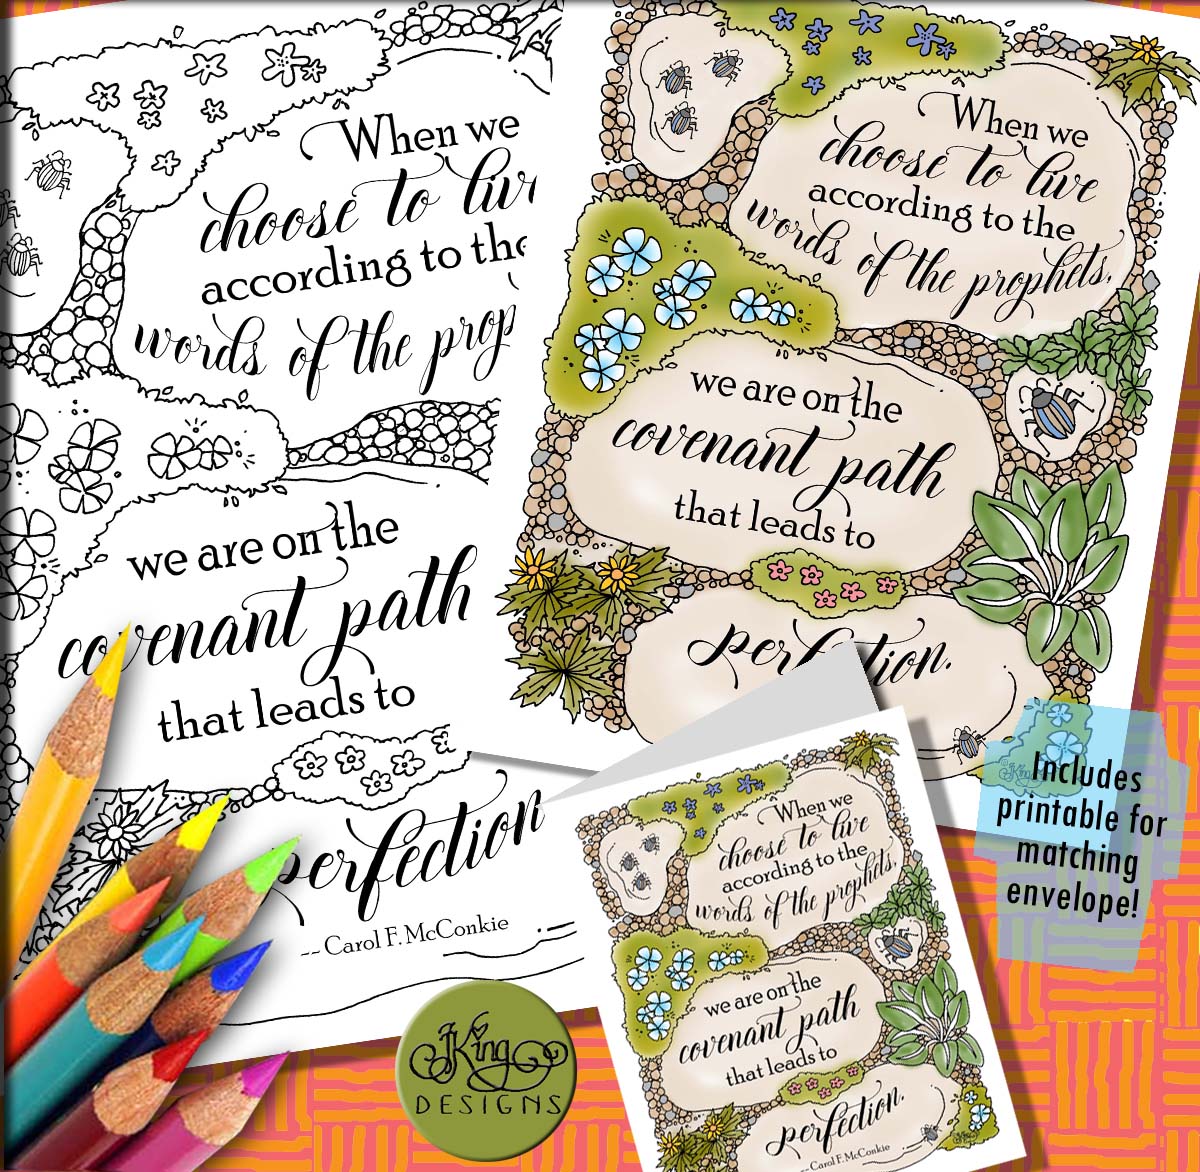 When we
choose to live
according to the
words of the prop
we are on the
covenant path
that leads to
perfection
-- Carol F. McConkie
When we
choose to live
according to the
words of the prophets,
we are on the
covenant path
that leads to
perfection.
Includes
printable for
matching
envelope!
When we
choose to live
according to the
words of the prophets,
we are on the
covenant path
that leads to
perfection.
-- Carol F. McConkie
JKing
DESIGNS